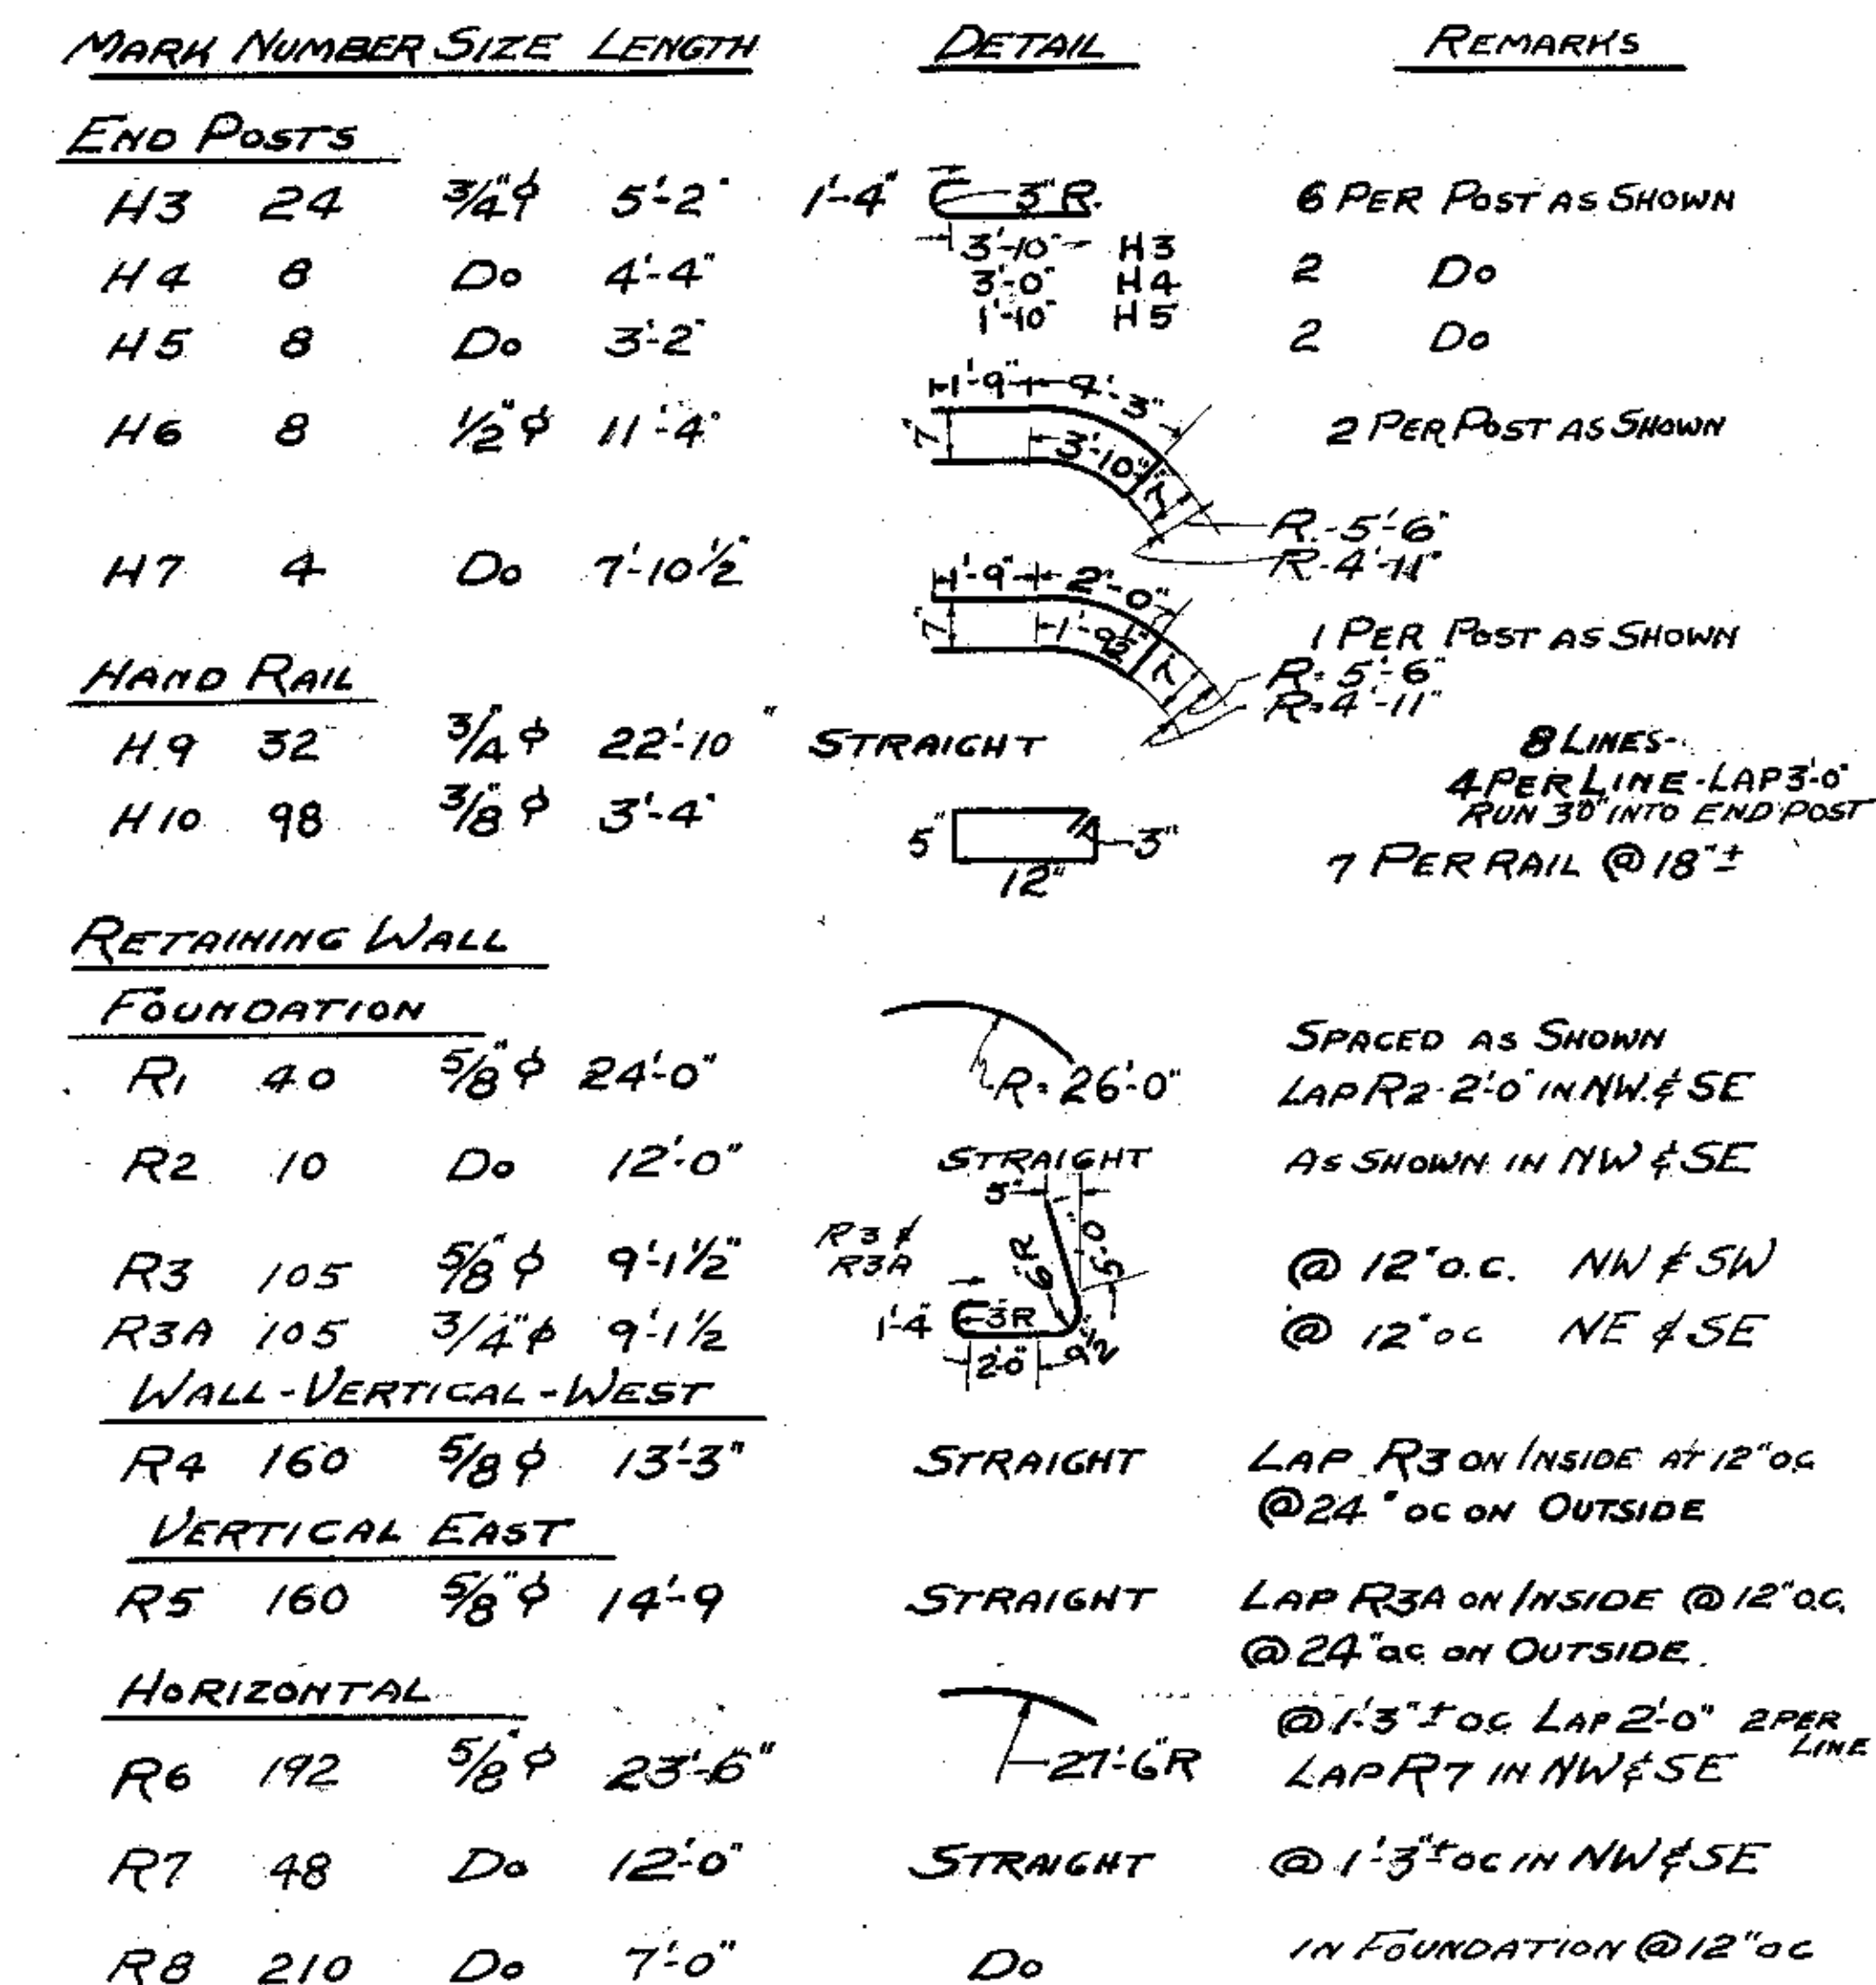 MARK NUMBER SIZE LENGTH DETAIL REMARKS
END POSTS
H3 24 3/4"ϕ 5'-2" 1'-4" 3"R. 6 PER POST AS SHOWN
3'-10" H3
H4 8 Do 4'-4" 3'-0" H4 2 Do
1'-10" H5
H5 8 Do 3'-2" 2 Do
1'-9" 4'-3"
H6 8 1/2"ϕ 11'-4" 7" 3'-10" 7" 2 PER POST AS SHOWN
R.-5'-6"
R-4'-11"
H7 4 Do 7'-10 1/2"
1'-9" 2'-0"
7" 1'-9 1/2" 7" 1 PER POST AS SHOWN
HAND RAIL R=5'-6"
R=4'-11"
H9 32 3/4"ϕ 22'-10" STRAIGHT 8 LINES-
4 PER LINE-LAP 3'-0"
RUN 30" INTO END POST
H10 98 3/8"ϕ 3'-4" 5" 3"
12" 7 PER RAIL @ 18"±
RETAINING WALL
FOUNDATION
SPACED AS SHOWN
R1 40 5/8"ϕ 24'-0" R=26'-0" LAP R2-2'-0" IN NW.& SE
R2 10 Do 12'-0" STRAIGHT AS SHOWN IN NW & SE
5"
R3 &
R3A 6"R 5'-0"
R3 105 5/8"ϕ 9'-1 1/2" @ 12" O.C. NW & SW
R3A 105 3/4"ϕ 9'-1 1/2 1'-4" 3R @ 12" OC NE & SE
2'-0" 9 1/2
WALL-VERTICAL-WEST
R4 160 5/8ϕ 13'-3" STRAIGHT LAP R3 ON INSIDE AT 12" OC
@24" OC ON OUTSIDE
VERTICAL EAST
R5 160 5/8"ϕ 14'-9 STRAIGHT LAP R3A ON INSIDE @ 12" O.C.
@24" OC ON OUTSIDE.
HORIZONTAL
@ 1'-3"± OC LAP 2'-0" 2 PER
LINE
R6 192 5/8"ϕ 23'-6" 27'-6"R LAP R7 IN NW & SE
R7 48 Do 12'-0" STRAIGHT @ 1'-3"± OC IN NW & SE
R8 210 Do 7'-0" Do IN FOUNDATION @ 12" OC